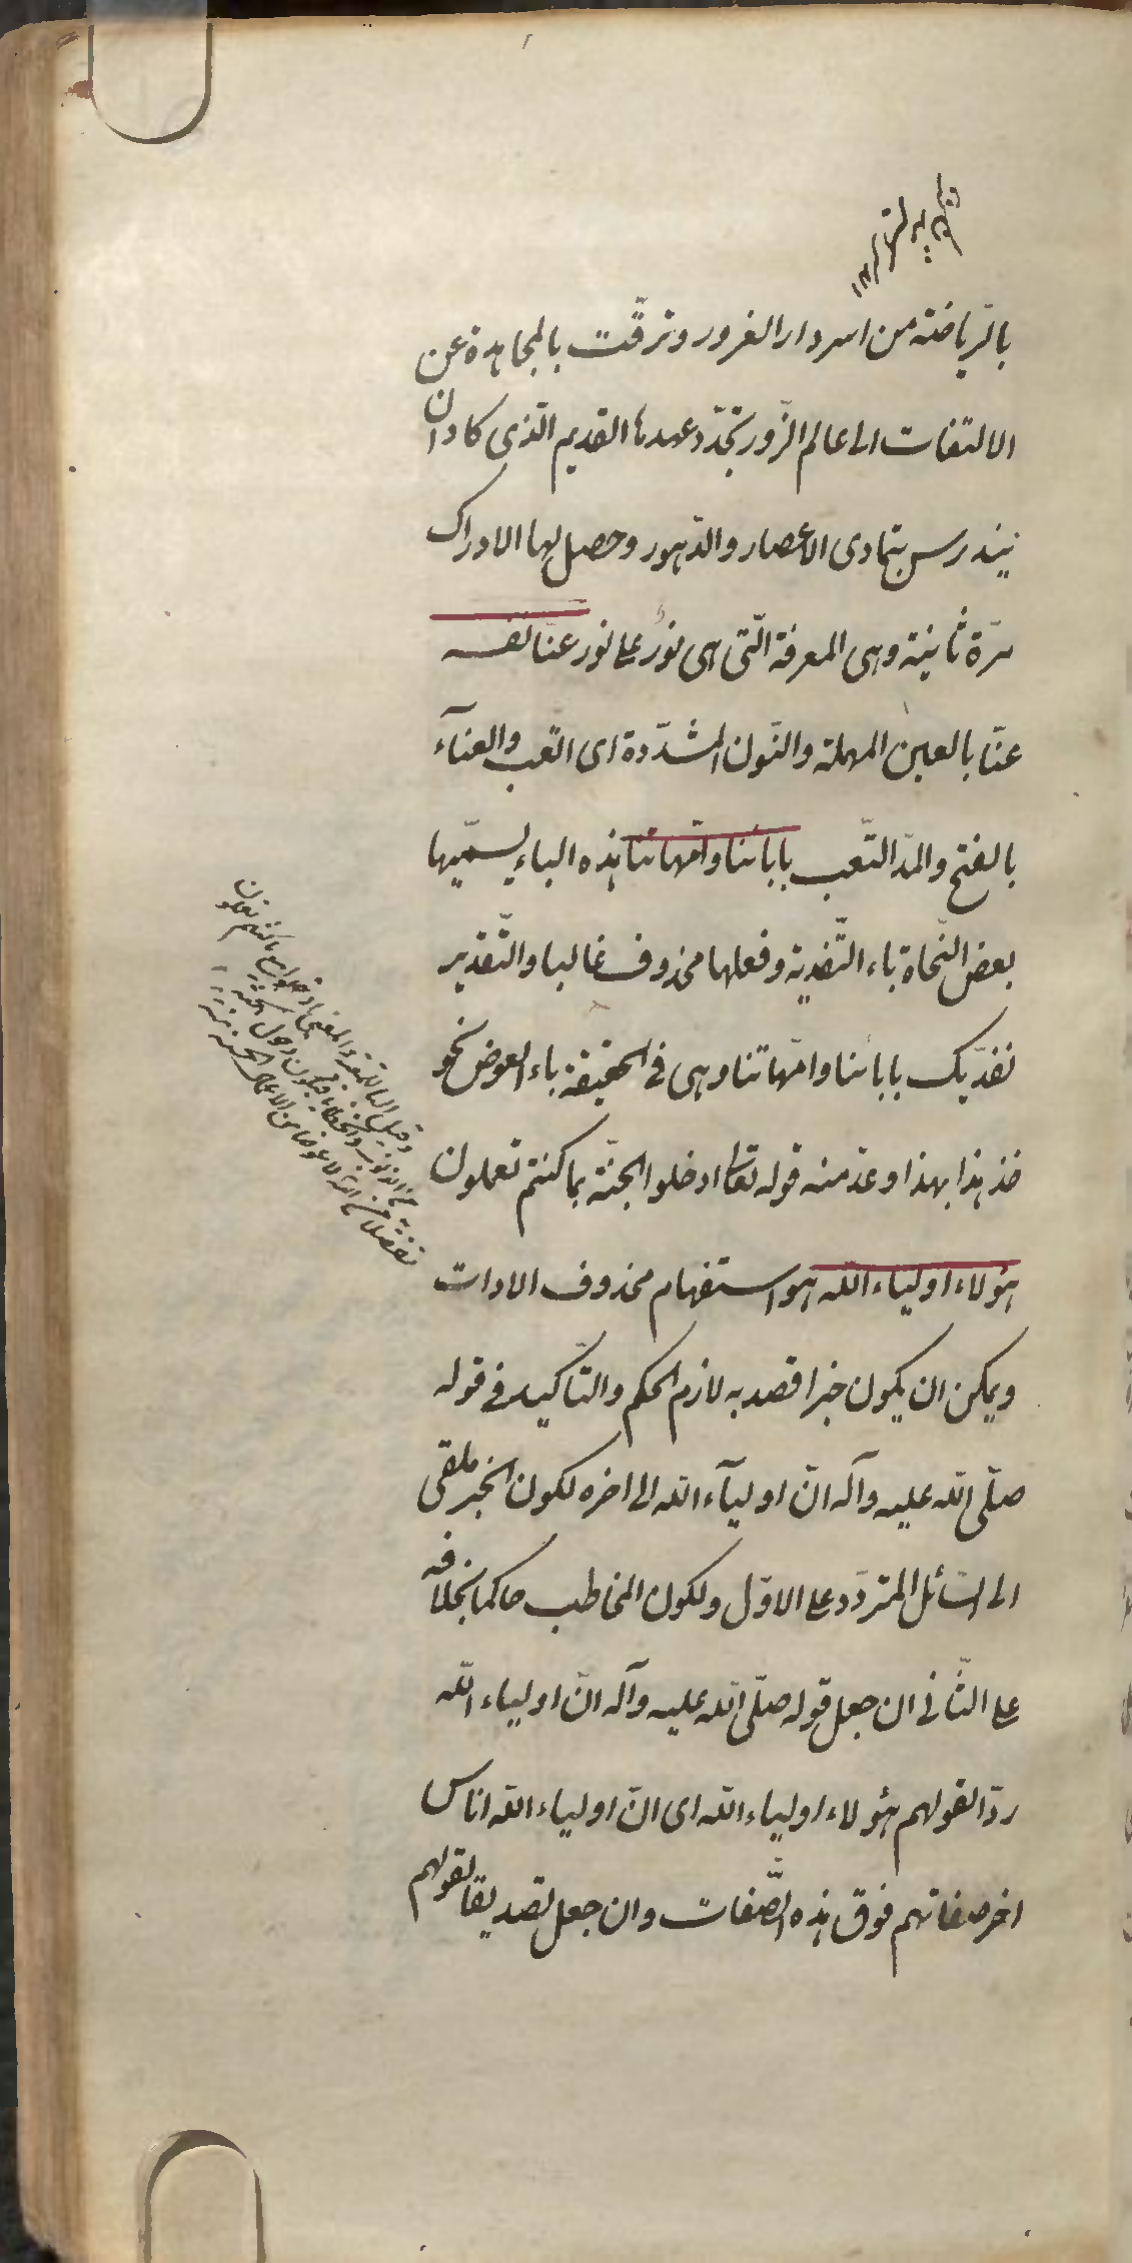 بالرّياضة من اسر دار الغرور وترقّت بالمجاهدة عن
الالتفات الى عالم الزّور تجدّد عهدها القديم الّذى كاد ان
يندرس بتمادى الاعصار والدّهور وحصل لها الادراك
مرّة ثانية وهى المعرفة الّتى هى نور على نور عنّا نفسه
عنّا بالعين المهملة والنّون المشدّدة اى اتعب والعنآء
بالفتح والمدّ التّعب بابائنا وامّهاتنا هذه الباء يسمّيها
بعض النّحاة باء التّفدية وفعلها محذوف غالبا والتّقدير
نفدّيك بابائنا وامّهاتنا وهى فى الحقيقة باء العوض نحو
خذ هذا بهذا وعدّ منه قوله تعالى ادخلوا الجنّة بما كنتم تعملون
هؤلاء اولياء الله هو استفهام محذوف الادات
ويمكن ان يكون خبرا قصد به لازم الحكم والتّاكيد فى قوله
صلّى الله عليه وآله انّ اوليآء الله الى اخره لكون الخبر ملقى
الى السّائل المتردّد على الاوّل ولكون المخاطب حاكما بخلافه
على الثّانى ان جعل قوله صلّى الله عليه وآله انّ اولياء الله
ردّا لقولهم هؤلاء اولياء الله اى انّ اولياء الله اناس
اخر صفاتهم فوق هذه الصّفات وان جعل تصديقا لقولهم